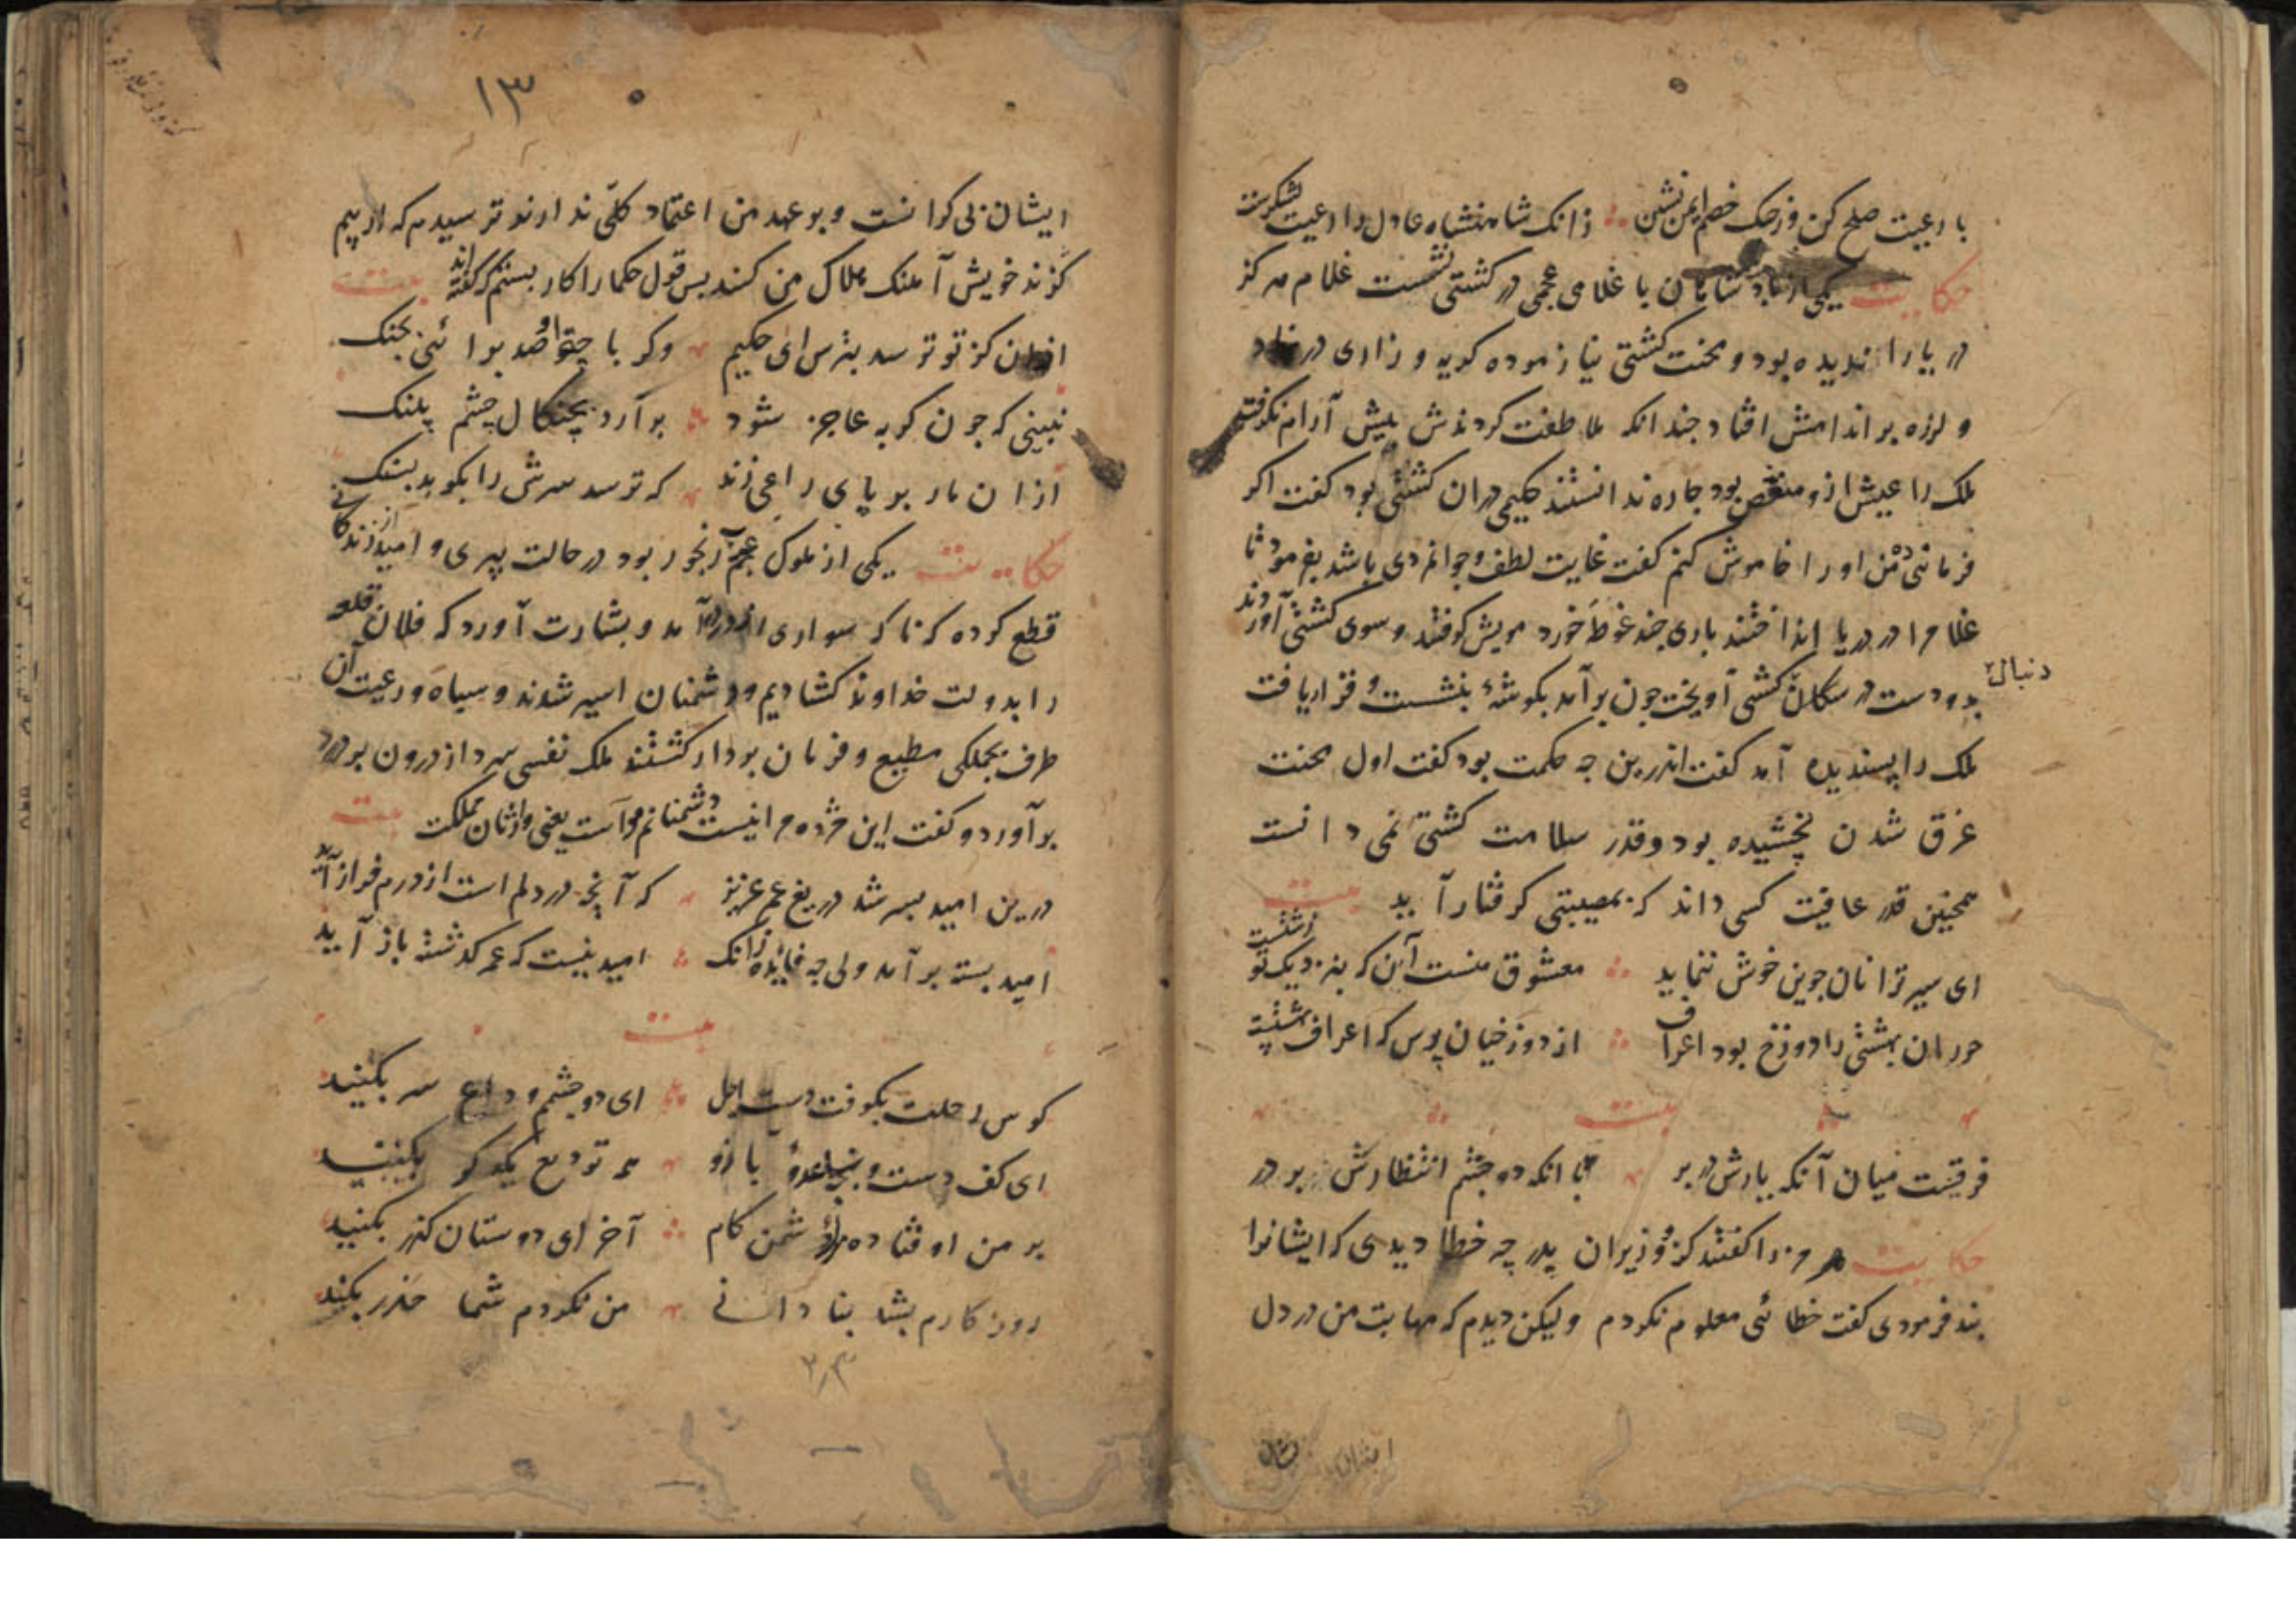 با رعیت صلح کن وز جنک خصم ایمن نشین زانک شاهنشاه عادل را رعیت لشکرست
حکایت یکی از پادشاهان با غلامی عجمی در کشتی نشست غلام هرکز
دریا را ندیده بود و محنت کشتی نیازموده کریه و زاری در نهاد
و لرزه بر اندامش افتاد چندانکه ملاطفت کردندش آرام نکرفت
ملک را عیش ازو منغص بود چاره ندانستند حکیمی دران کشتی بود کفت اکر
فرمائی من او را خاموش کنم کفت غایت لطف و جوانمردی باشد بفرمود تا
غلام را در دریا انداختند باری چند غوطه خورد مویش کرفتند و سوی کشتی آوردند
دنبال
بدو دست در سکان کشتی آویخت چون برآمد بکوشهٔ بنشست و قرار یافت
ملک را پسندیده آمد کفت اندرین چه حکمت بود کفت اول محنت
غرق شدن نچشیده بود و قدر سلامت کشتی نمی دانست
همچنین قدر عافیت کسی داند که بمصیبتی کرفتار آید بیت
ای سیر ترا نان جوین خوش ننماید معشوق منست آن که بنزدیک تو زشتست
حوران بهشتی را دوزخ بود اعراف از دوزخیان پرس که اعراف بهشتست
بیت
فرقست میان آنکه یارش در بر با آنکه دو چشم انتظارش بر در
حکایت هرمز را کفتند کز وزیران پدر چه خطا دیدی که ایشانرا
بند فرمودی کفت خطائی معلوم نکردم ولیکن دیدم که مهابت من در دل
ایشان
۱۳
ایشان بی کرانست و بر عهد من اعتماد کلی ندارند ترسیدم که از بیم
کزند خویش آهنک هلاک من کنند پس قول حکما را کار بستم که کفته اند بیت
ازان کز تو ترسد بترس ای حکیم وکر با چنو صد برائی بجنک
نبینی که چون کربه عاجز شود برآرد بچنکال چشم پلنک
ازان مار بر پای راعی زند که ترسد سرش را بکوبد بسنک
حکایت یکی از ملوک عجم رنجور بود در حالت پیری و امید از زندکانی
قطع کرده که ناکه سواری از در درآمد و بشارت آورد که فلان قلعه
را بدولت خداوند کشادیم و دشمنان اسیر شدند و سپاه و رعیت آن
طرف بجملکی مطیع و فرمان بردار کشتند ملک نفسی سرد از درون پر درد
برآورد و کفت این مژده مرا نیست دشمنانم راست یعنی وارثان مملکت بیت
درین امید بسر شد دریغ عمر عزیز که آنچه در دلم است از درم فراز آید
امید بسته برآمد ولی چه فایده زانک امید نیست که عمر کذشته باز آید
بیت
کوس رحلت بکوفت دست اجل ای دو چشم وداع سر بکنید
ای کف دست و ساعد و بازو همه تودیع یکدکر بکنید
بر من اوفتاده دشمن کام آخر ای دوستان کذر بکنید
روزکارم بشد بنادانی من نکردم شما حذر بکنید